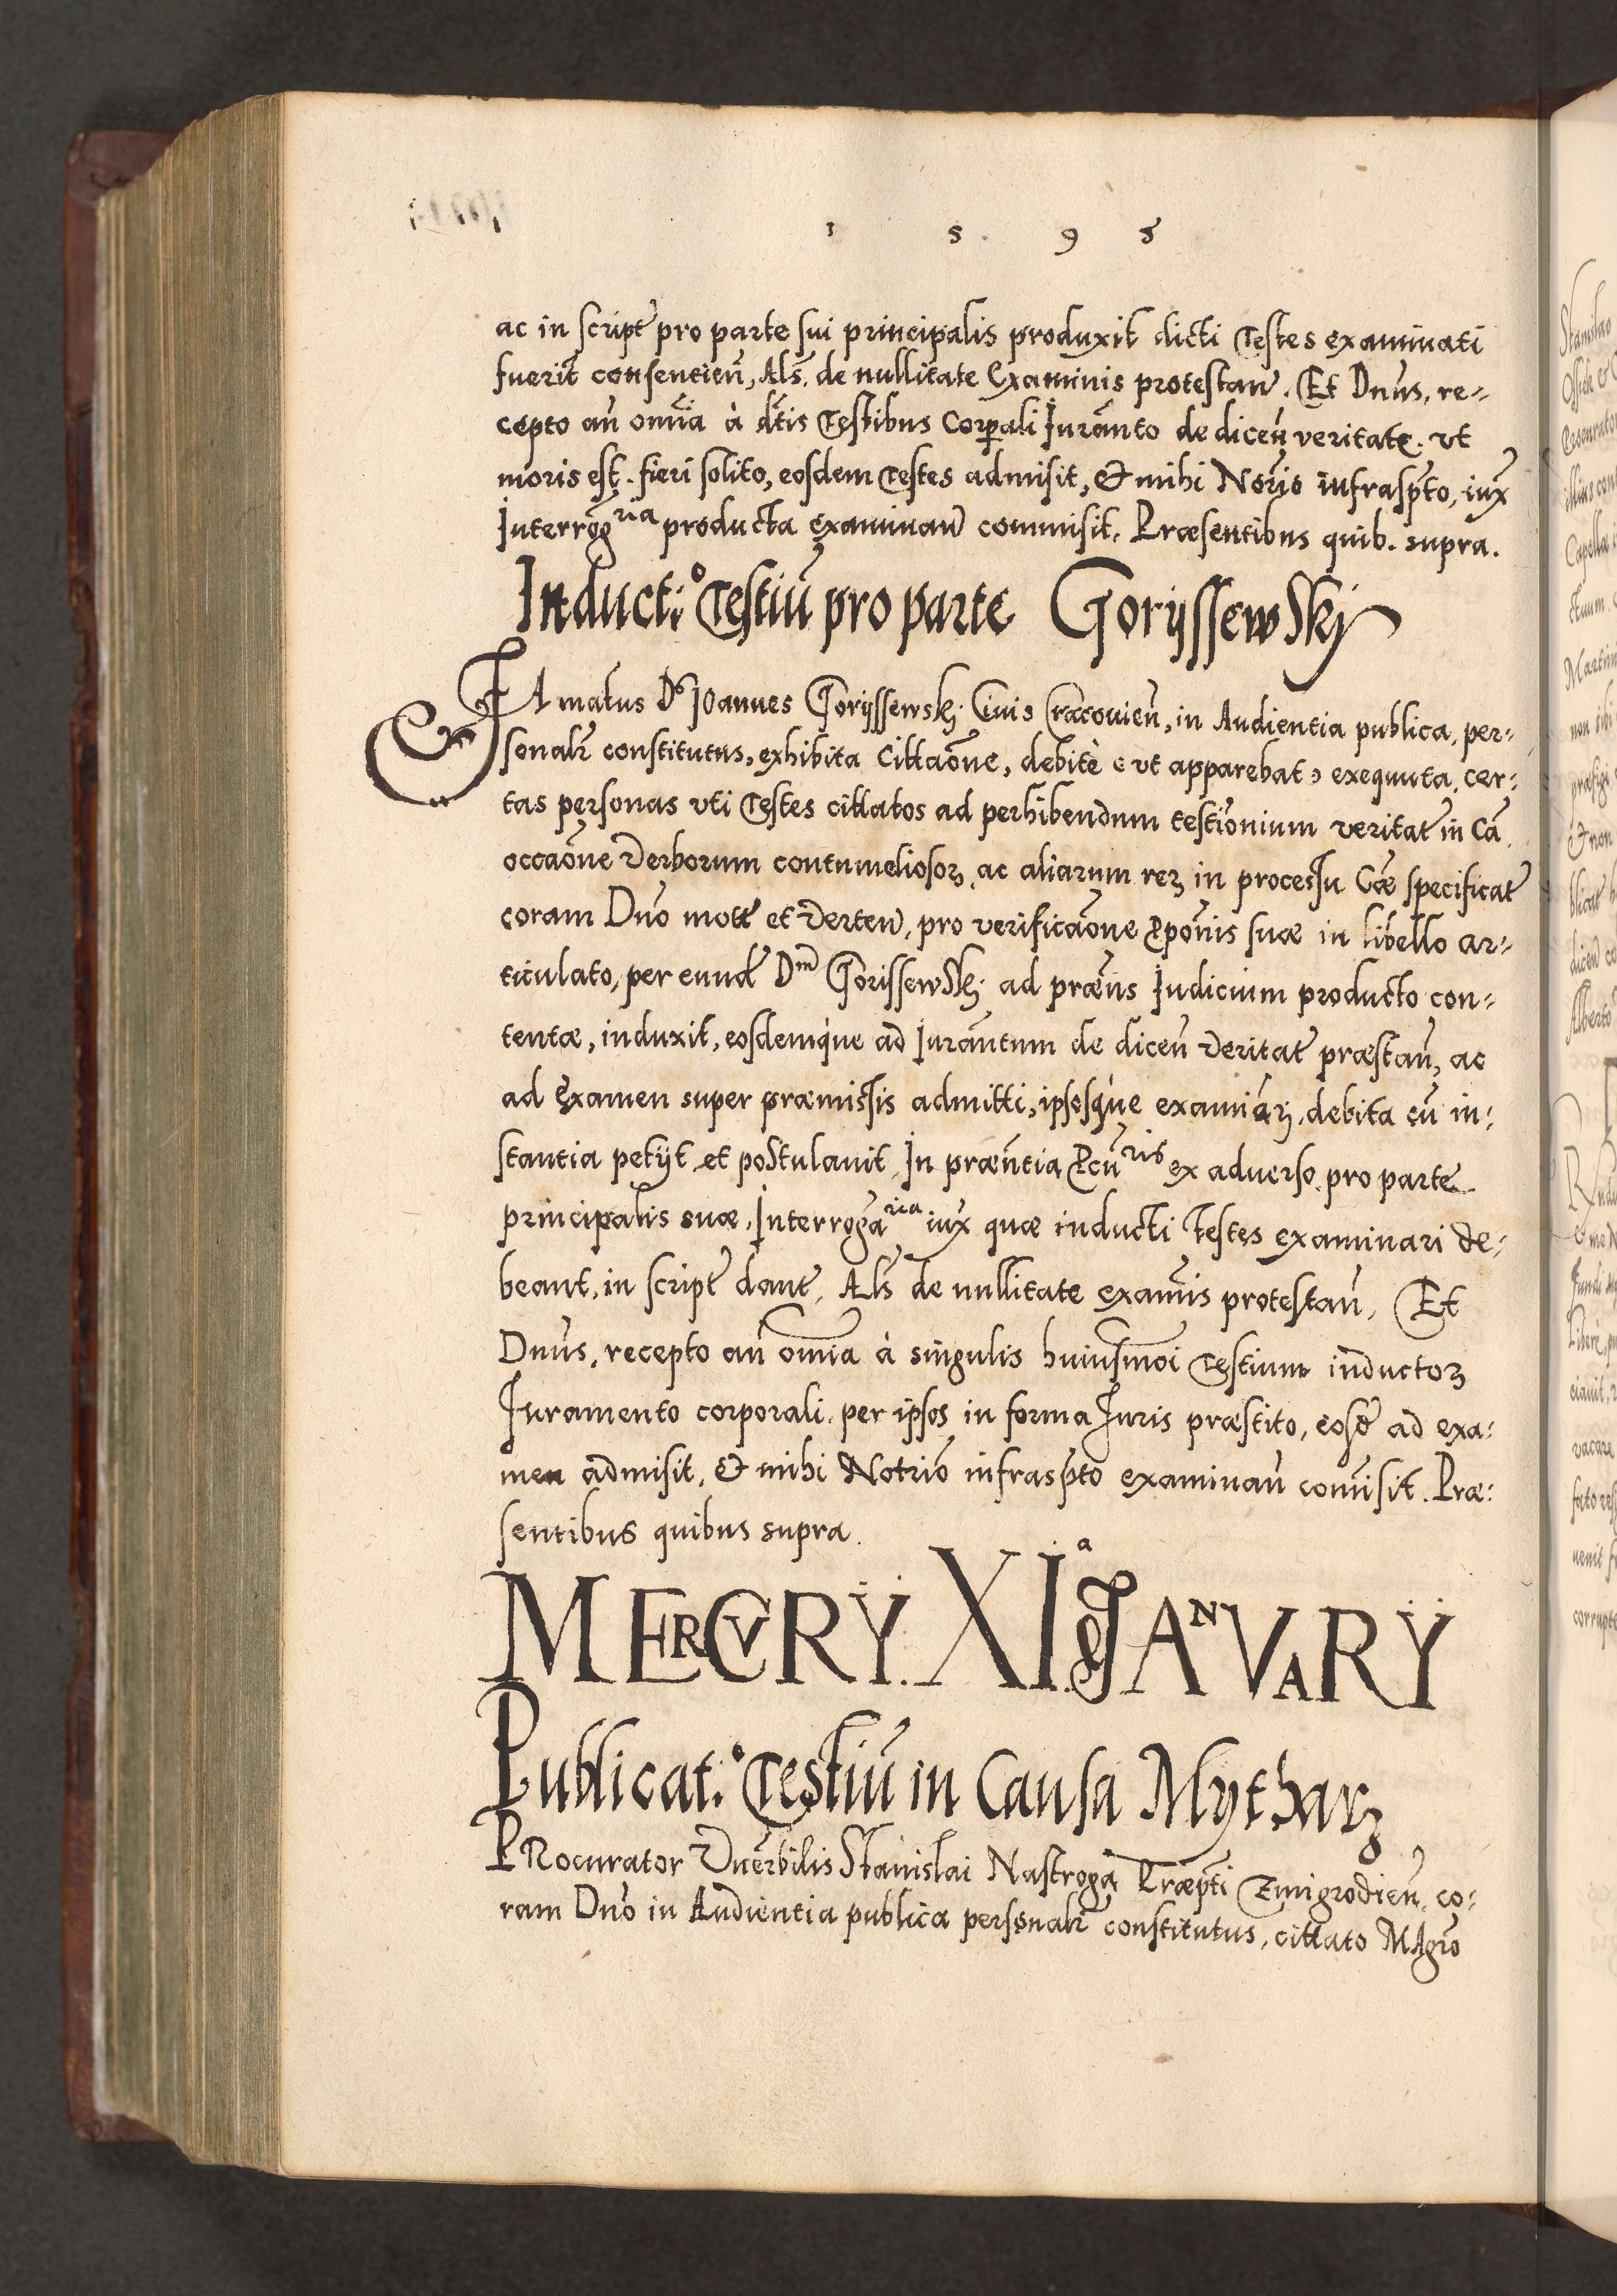 1 5 9 5
ac in script̃ pro parte sui principalis produxit dicti Testes examinati
fuerit̃ consentieñ, Als̃. de nullitate Examinis protestañ. Et Dnũs, re-
cepto añ omnĩa à dtĩs Testibus Corpali Iurãnto de diceñ veritate. vt
moris est. fieri solito, eosdem Testes admisit, & mihi Noriõ infrasptõ, iux̃
Interrog̃ria producta examinañ commisit. Præsentibus quib. supra.
Inducti:o Testiũ pro parte Gorÿssewskj
FAmatus Ds Ioannes Gorÿssewskj Ciuis Cracouieñ, in Audientia publica, per-
sonalr̃ constitutus, exhibita Cittaõne, debitè (vt apparebat) exequuta, cer-
tas personas vti Testes cittatos ad perhibendum testiõnium veritat̃ in Cã
occaõne Verborum contumeliosoꝝ, ac aliarum reꝝ in processu Cæ̃ specificat̃
coram Dnõ mott̃ et Verteñ, pro verificaõne Ꝓponĩs suæ in libello ar-
ticulato, per eund̃ Dm̃ Gorissewskj ad præñs Iudicium producto con-
tentæ, induxit, eosdemq́ue ad Iurãntum de diceñ Veritat̃ præstañ, ac
ad Examen super præmissis admitti, ipsosq́ue examiãrj, debita cũ in-
stantia petÿt et postulauit, In præñtia Ꝓcũris ex aduerso pro parte
principalis suæ, Interrogãria iux̃ quæ inducti Testes examinari de-
beant, in script̃ dant̃, Als̃ de nullitate examĩs protestañ, Et
Dnũs, recepto añ omĩa à singulis huiusmõi Testium inductoꝝ
Iuramento corporali, per ipsos in forma Iuris præstito, eosd̃ ad exa-
men admisit, & mihi Notriõ infrasptõ examinañ com̃isit. Præ-
sentibus quibus supra.
MERCVRŸ. XI.a IANVARŸ
Publicat:o Testiũ in Causa Mytharz
PRocurator Vnẽrbilis Stanislai Nastroga Præptĩ Zmigrodieñ, co-
ram Dnõ in Audientia publica personalr̃ constitutus, cittato MAgrõ